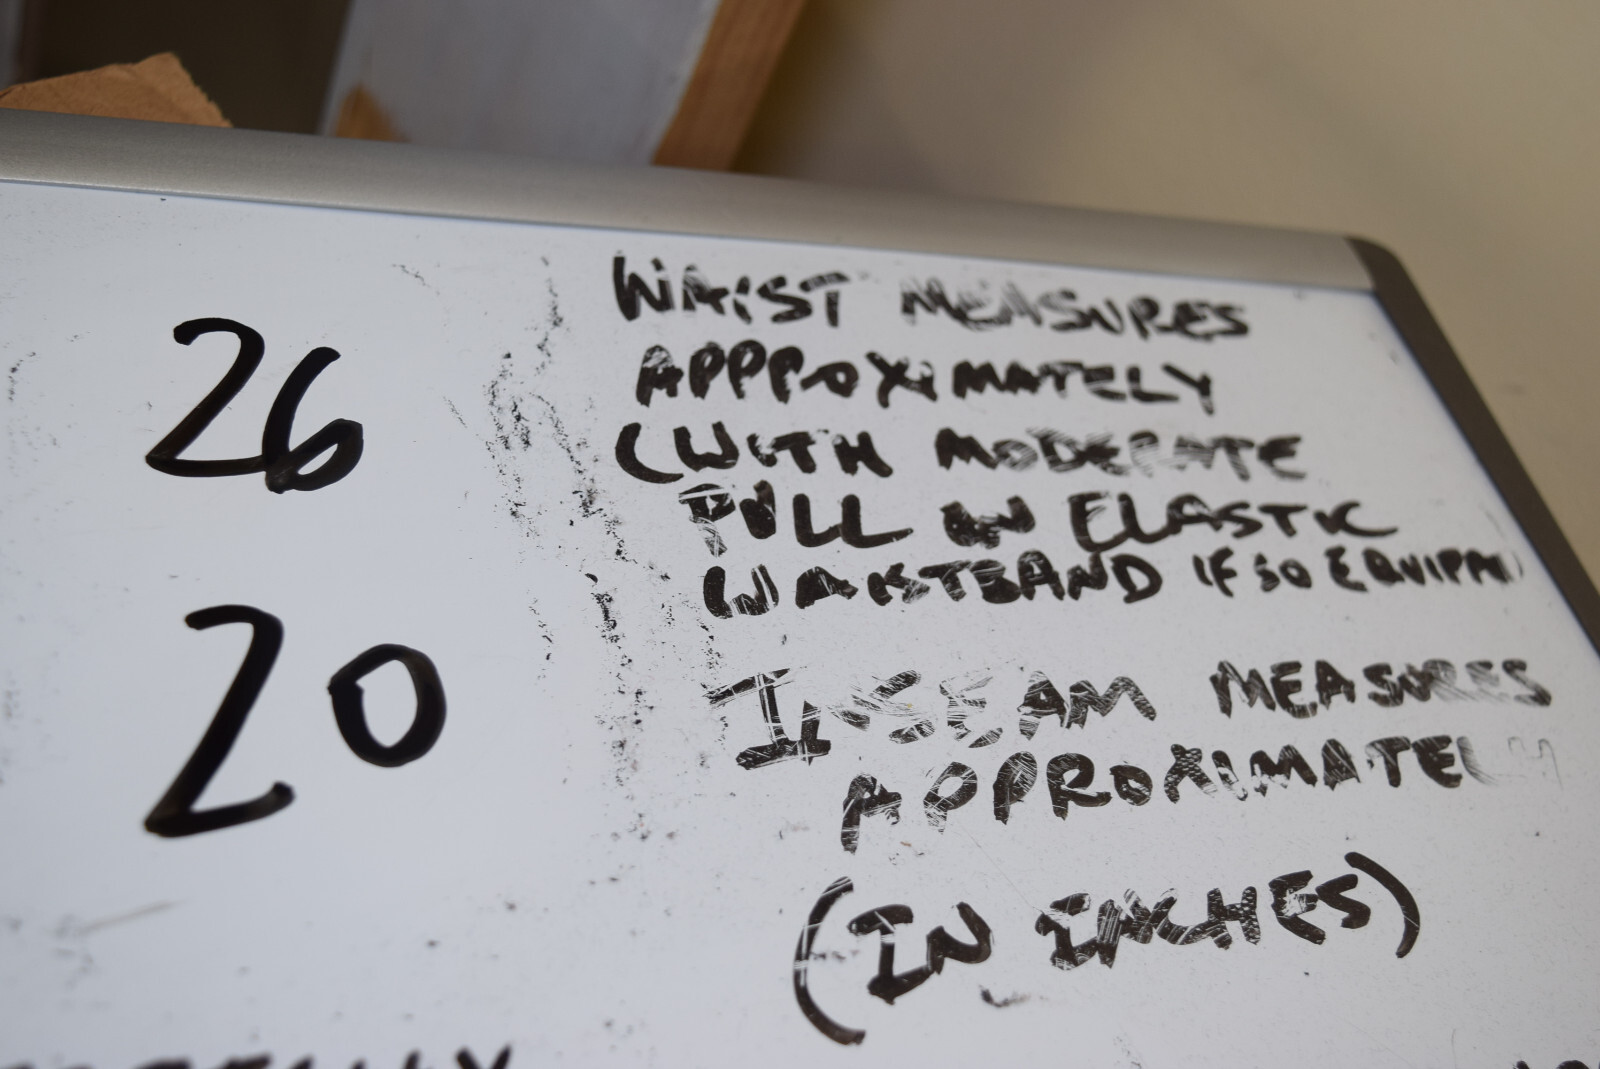 26
WAIST MEASURES
APPPOXIMATELY
(WITH MODERATE
PULL ON ELASTIC
WAISTBAND IF SO EQUIPPED)
20
INSEAM MEASURES
APPROXIMATELY
(IN INCHES)